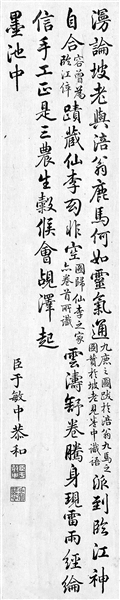 漫論坡老與涪翁鹿馬何如靈氣通九鹿之圖跋於涪翁九馬之圖贊於坡老見卷中識語派到臨江神
自合容曾為臨江倅蹟藏仙李幻非空圖歸仙李之家亦卷首所識雲濤舒卷騰身現雷雨經綸
信手工正是三農生穀候會覘澤起
墨池中
臣于敏中恭和